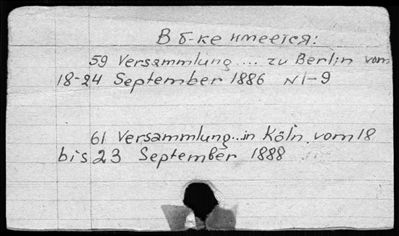 В б-ке имеется:
59 Versammlung .... zu Berlin vom
18-24 September 1886 N1-9
61 Versammlung...in Köln vom 18
bis 23 September 1888